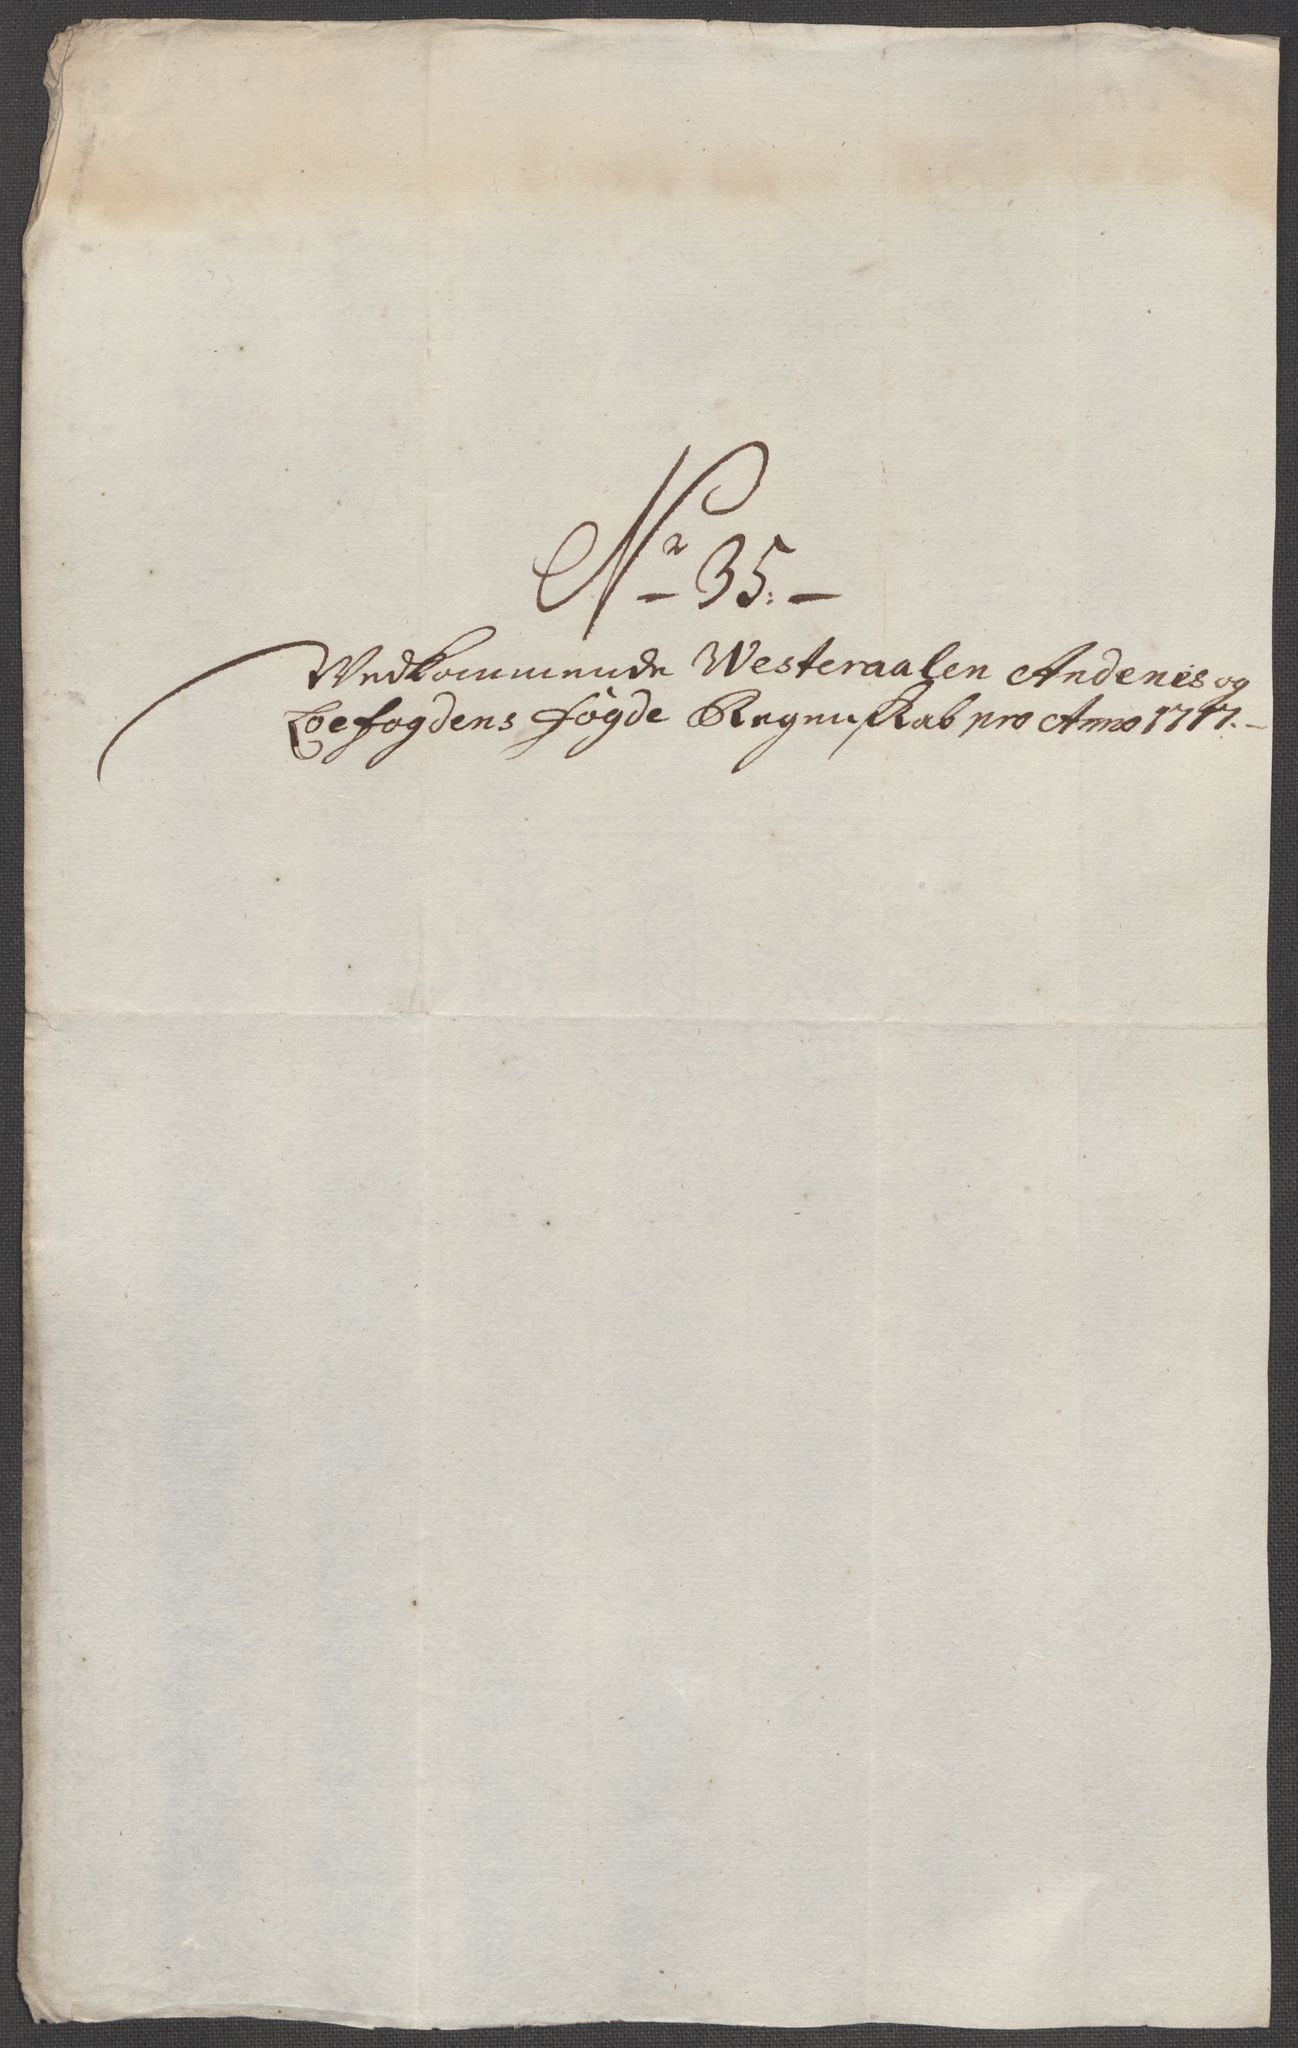 Nr 35.
Vedkommende Westeraalen Andenes og
Loefogdens fögde Regenskab pro Anno 1717.